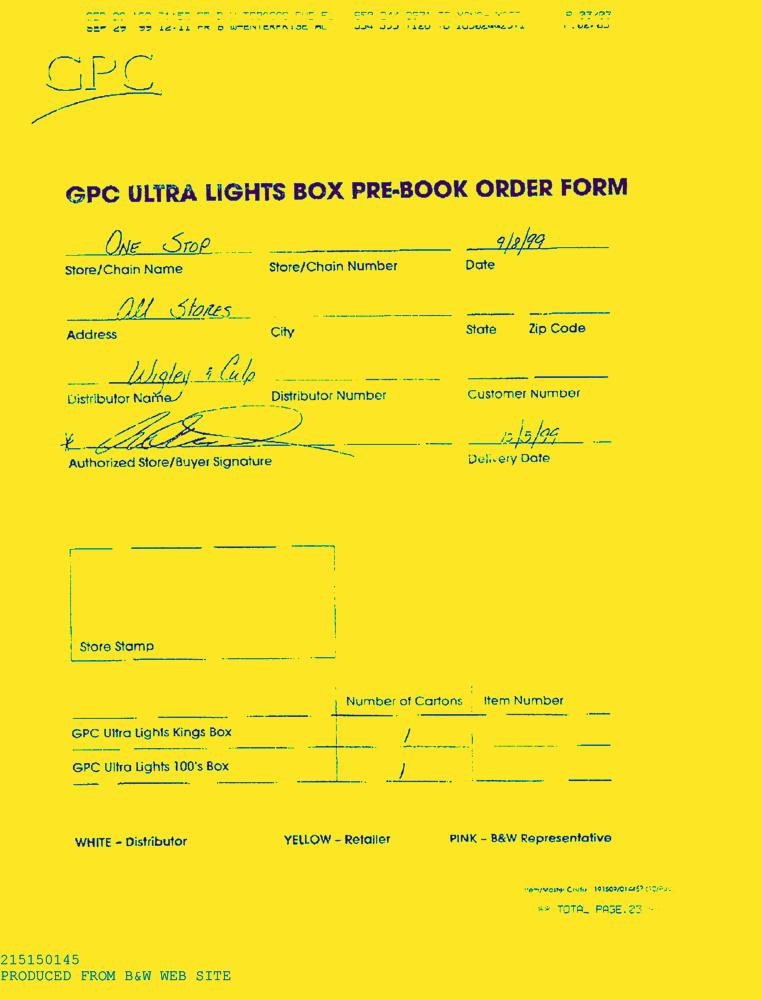 GPC
GPC ULTRA LIGHTS BOX PRE-BOOK ORDER FORM
ONE STOP 9/8/99
Store/Chain Name Store/Chain Number Date
All STORES
Address City State Zip Code
Wigley & Culp
Distributor Name Distributor Number Customer Number
12/5/99
Authorized Store/Buyer Signature Delivery Date
Store Stamp
Number of Cartons Item Number
GPC Ultra Lights Kings Box 1
GPC Ultra Lights 100's Box 1
WHITE - Distributor YELLOW - Retailer PINK - B&W Representative
** TOTAL PAGE.23 **
215150145
PRODUCED FROM B&W WEB SITE